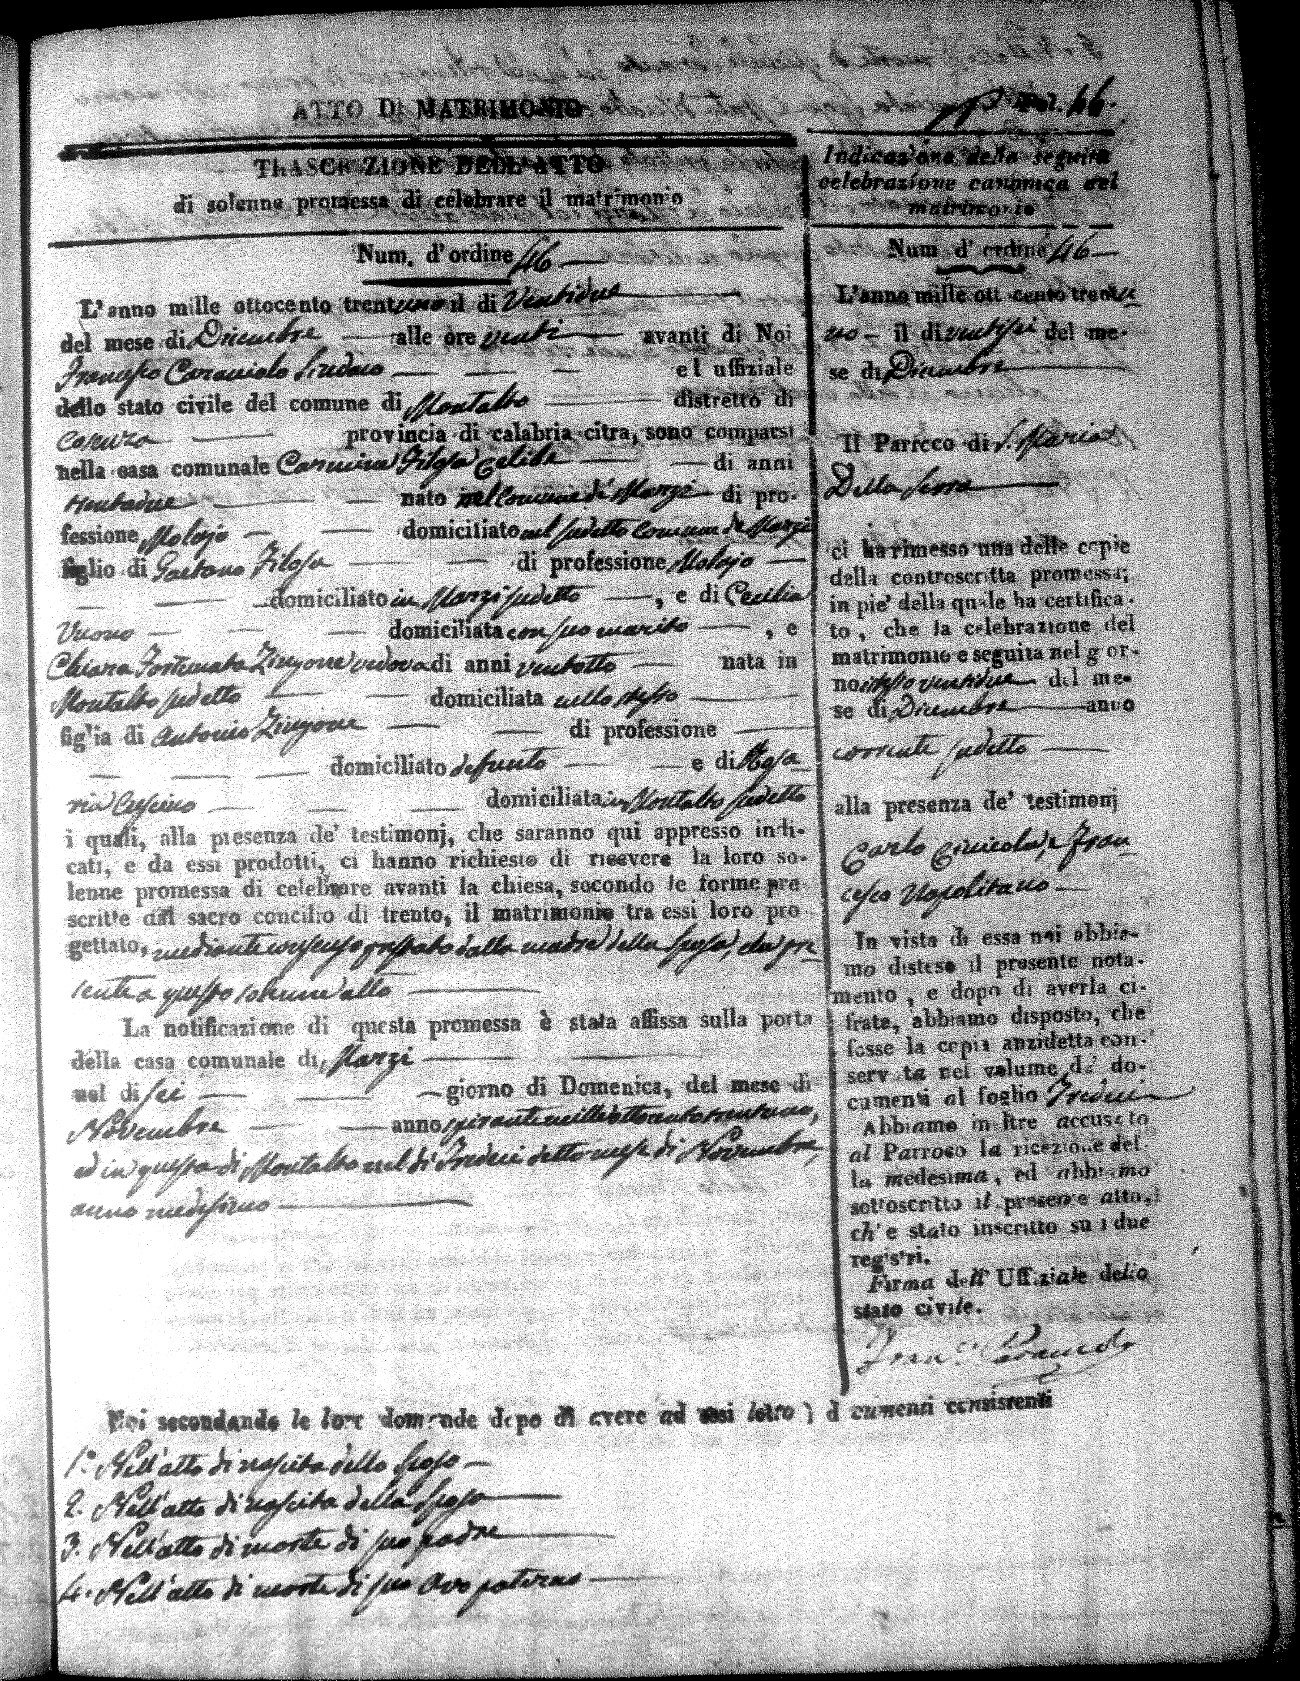 ATTO DI MATRIMONIO
Fol. 46.
TRASCRIZIONE DELL'ATTO
di solenne promessa di celebrare il matrimonio
Num. d'ordine 46
L'anno mille ottocento trentuno il di Ventidue
del mese di Dicembre alle ore venti avanti di Noi
Francesco Caracciolo Sindaco ed uffiziale
dello stato civile del comune di Montalto distretto di
Cosenza provincia di calabria citra, sono comparsi
nella casa comunale Carmine Filosa Celibe di anni
trentadue nato nel Comune di Marzi di pro-
fessione Molajo domiciliato nel sudetto Comune di Marzi
figlio di Gaetano Filosa di professione Molajo
domiciliato in Marzi sudetto, e di Cecilia
Vuono domiciliata con suo marito, e
Chiara Fortunata Zingone vedova di anni ventotto nata in
Montalto sudetto domiciliata nello stesso
figlia di Antonio Zingone di professione
domiciliato defunto e di Rosa
ria domiciliata in Montalto sudetto
i quali, alla presenza de' testimonj, che saranno qui appresso indi-
cati, e da essi prodotti, ci hanno richiesto di ricevere la loro so-
lenne promessa di celebrare avanti la chiesa, secondo le forme pre
scritte dal sacro concilio di trento, il matrimonio tra essi loro pro
gettato, mediante consenso prestato dalla madre della sposa, che pre
sente a questo solenne atto
La notificazione di questa promessa è stata affissa sulla porta
della casa comunale di Marzi
nel di sei giorno di Domenica, del mese di
Novembre anno spirante mille ottocento trentuno,
ed in questa di Montalto nel di Tredici detto mese di Novembre,
anno medesimo
Indicazione della seguita
celebrazione canonica del
matrimonio
Num d'ordine 46
L'anno mille ott cento trentu
no il di ventisei del me-
se di Dicembre
Il Parroco di S. Maria
Della Serra
ci ha rimesso una delle copie
della controscritta promessa;
in pie' della quale ha certifica-
to, che la celebrazione del
matrimonio e seguita nel gior-
no ventidue del me-
se di Dicembre anno
corrente sudetto
alla presenza de' testimonj
Carlo e Fran
cesco Napolitano
In vista di essa noi abbia-
mo disteso il presente nota-
mento, e dopo di averla ci-
frata, abbiamo disposto, che
fosse la copia anzidetta con-
servata nel volume de' do-
cumenti al foglio Tredici
Abbiamo inoltre accusato
al Parroco la ricezione del
la medesima, ed abbiamo
sottoscritto il presente atto,
ch'e stato inscritto su i due
registri.
Firma dell' Uffiziale dello
stato civile.
Fran.o Caracciolo
Noi secondando le loro domande dopo di avere ad essi letto i documenti consistenti
1.° Nell'atto di nascita dello sposo
2. Nell'atto di nascita della sposa
3. Nell'atto di morte di suo padre
4. Nell'atto di morte di suo Avo paterno